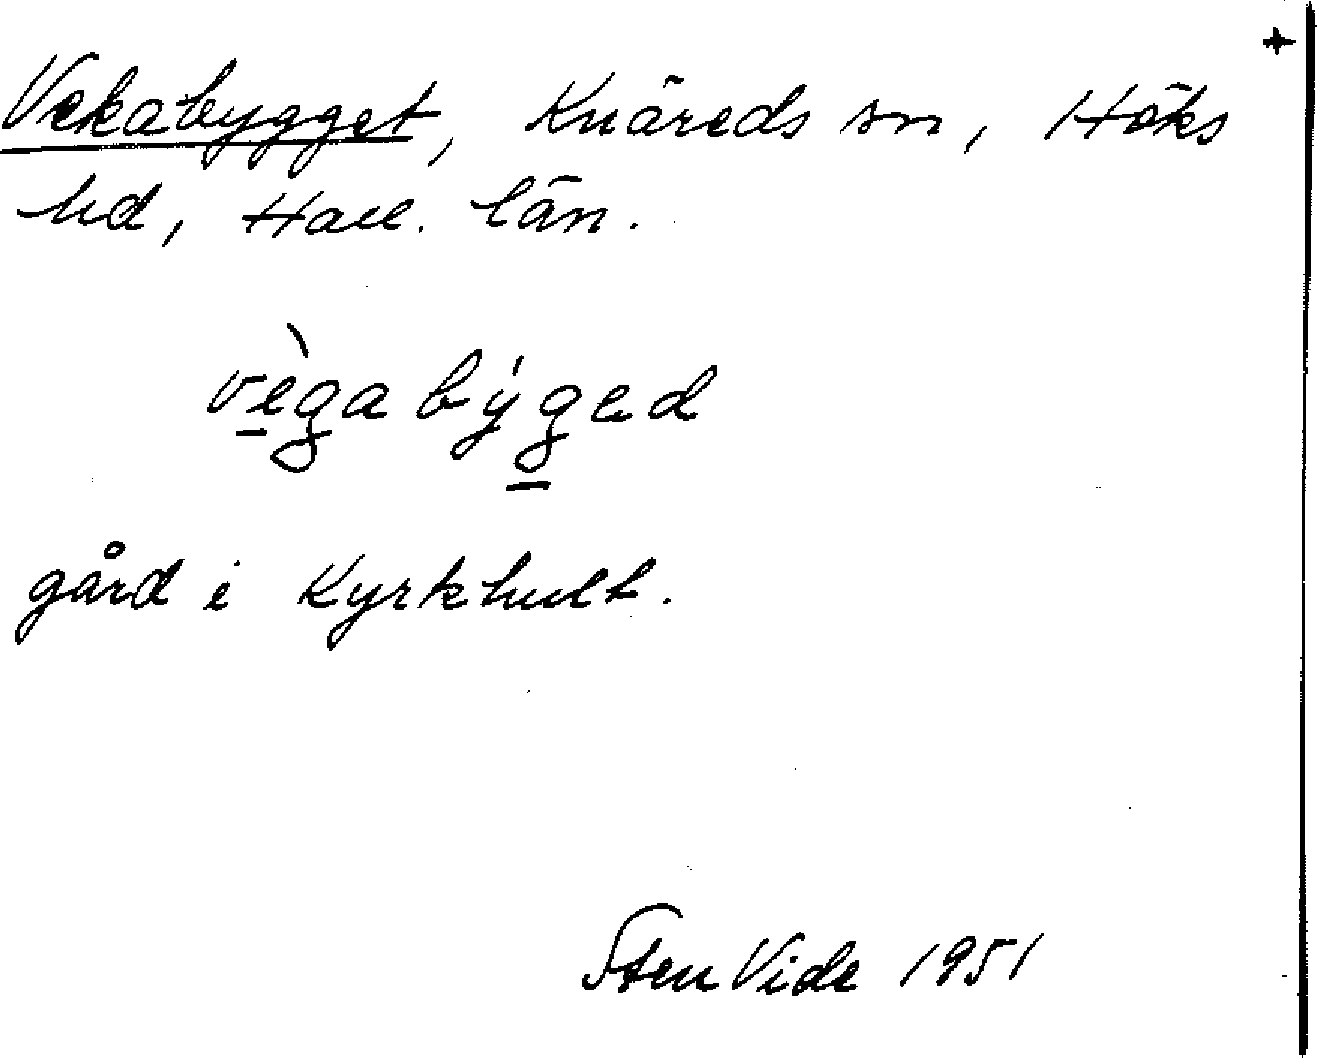 +
Vekabygget, Knäreds sn, Höks
hd, Hall. län.
vègabýged
gård i Kyrkhult.
Sten Vide 1951